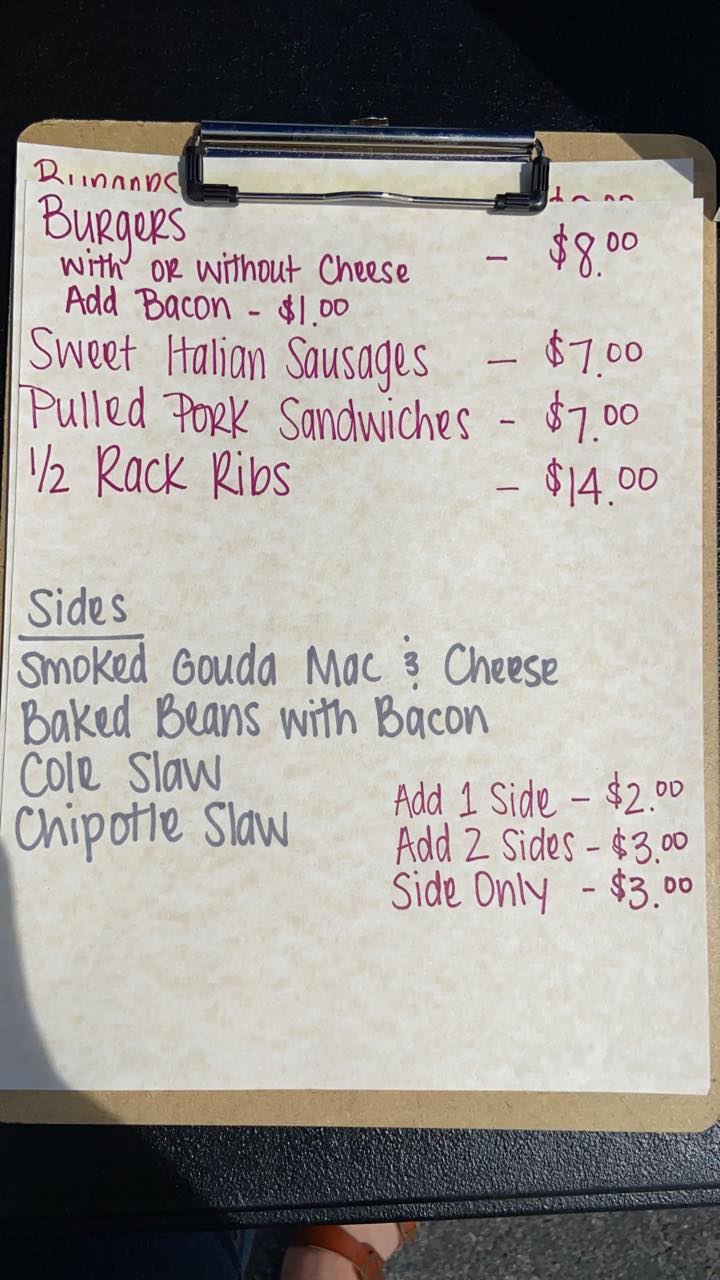 Burgers - $8.00
with or without Cheese
Add Bacon - $1.00
Sweet Italian Sausages - $7.00
Pulled Pork Sandwiches - $7.00
1/2 Rack Ribs - $14.00
Sides
Smoked Gouda Mac & Cheese
Baked Beans with Bacon
Cole Slaw
Chipotle Slaw
Add 1 Side - $2.00
Add 2 Sides - $3.00
Side Only - $3.00